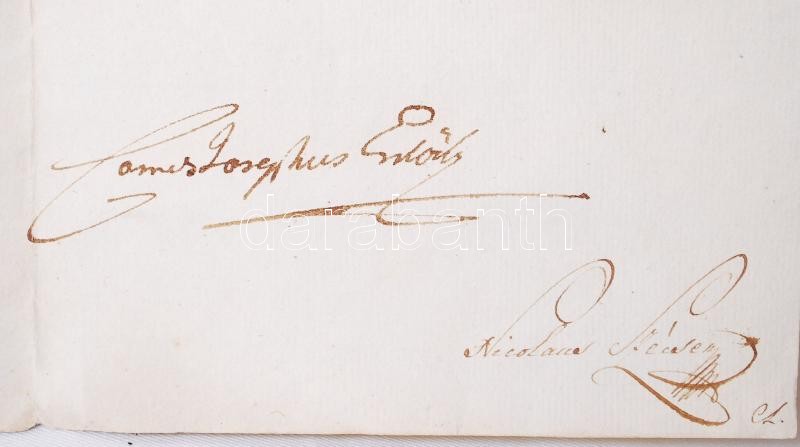 Comes Josephus Erdödy
darabanth
Nicolaus Szécsen